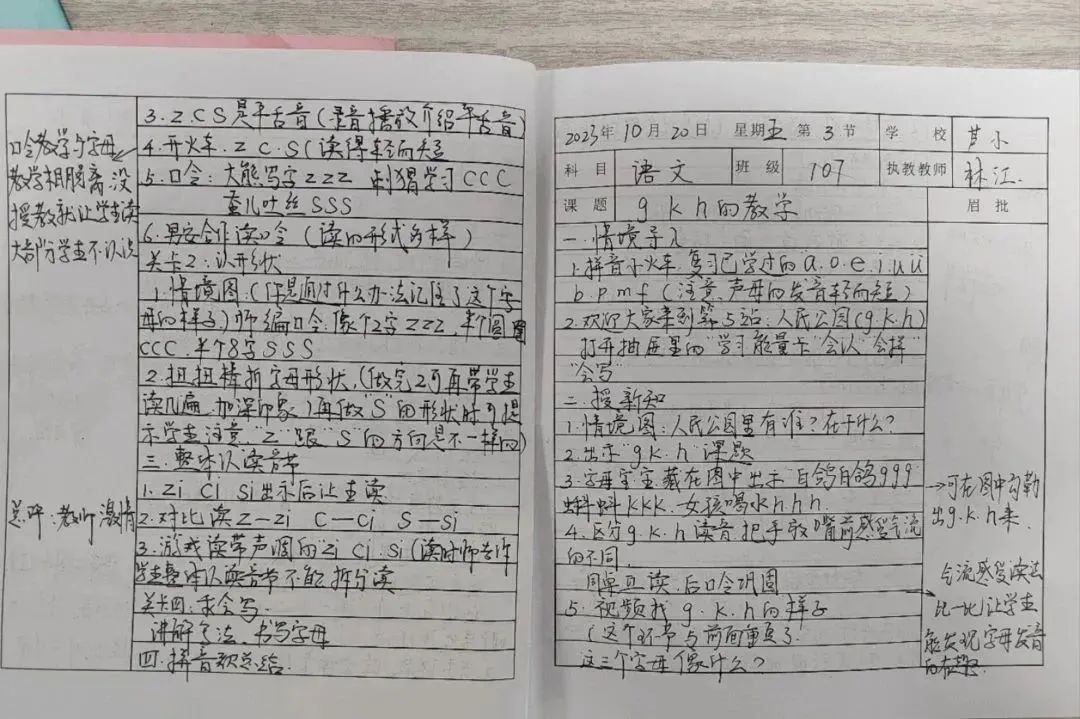 3. z.c s 是平舌音(录音播放介绍平舌音)
4. 开火车. z c.s(读得轻而短
5. 口令: 大熊写字zzz 刺猬学习ccc
蚕儿吐丝sss
6. 男女合作读口令 (读的形式多样)
关卡2: 认形状
1. 情境图: (你是通过什么办法记住了这个字
母的样子) 师编口令: 像个2字zzz. 半个圆圈
ccc. 半个8字sss
2. 扭扭棒折字母形状. (做完2可再带学生
读几遍. 加深印象) 再做“s”的形状时可提
示学生注意“z”跟“s”的方向是不一样的)
三. 整体认读音节
1. zi ci si 出示后让生读
2. 对比读z—zi c—ci s—si
3. 游戏读带声调的zi ci. si (读时师告诉
学生整体认读音节不能拆分读
关卡四: 我会写.
讲解写法. 书写字母
四. 拼音歌总结.
口令教学与字母
教学相脱离. 没
授教就让学生读
大部分学生不认识
总评: 教师激情
2023年 10月 20日 星期五 第 3 节 学 校 甘小
科 目 语文 班 级 107 执教教师 林江.
课 题 g k h的教学 眉 批
一. 情境导入
1. 拼音小火车. 复习已学过的a.o.e.i.u ü
b.p.m f (注意. 声母的发音轻而短)
2. 欢迎大家来到第5站: 人民公园(g.k.h)
打开抽屉里的“学习能量卡“会认”会拼”
“会写”
二. 授新知
1. 情境图: 人民公园里有谁? 在干什么?
2. 出示 g k.h 课题
3. 字母宝宝藏在图中出示“白鸽白鸽ggg
蝌蚪kkk. 女孩喝水hhh.
4. 区分g.k.h读音. 把手放嘴前感受气流
的不同.
同桌互读. 后口令巩固
5. 视频找 g.k.h的样子
(这个环节与前面重复了.
这三个字母像什么?
→可在图中勾勒
出g.k.h来.
气流感受读法
比一比让学生
能发现字母发音
的